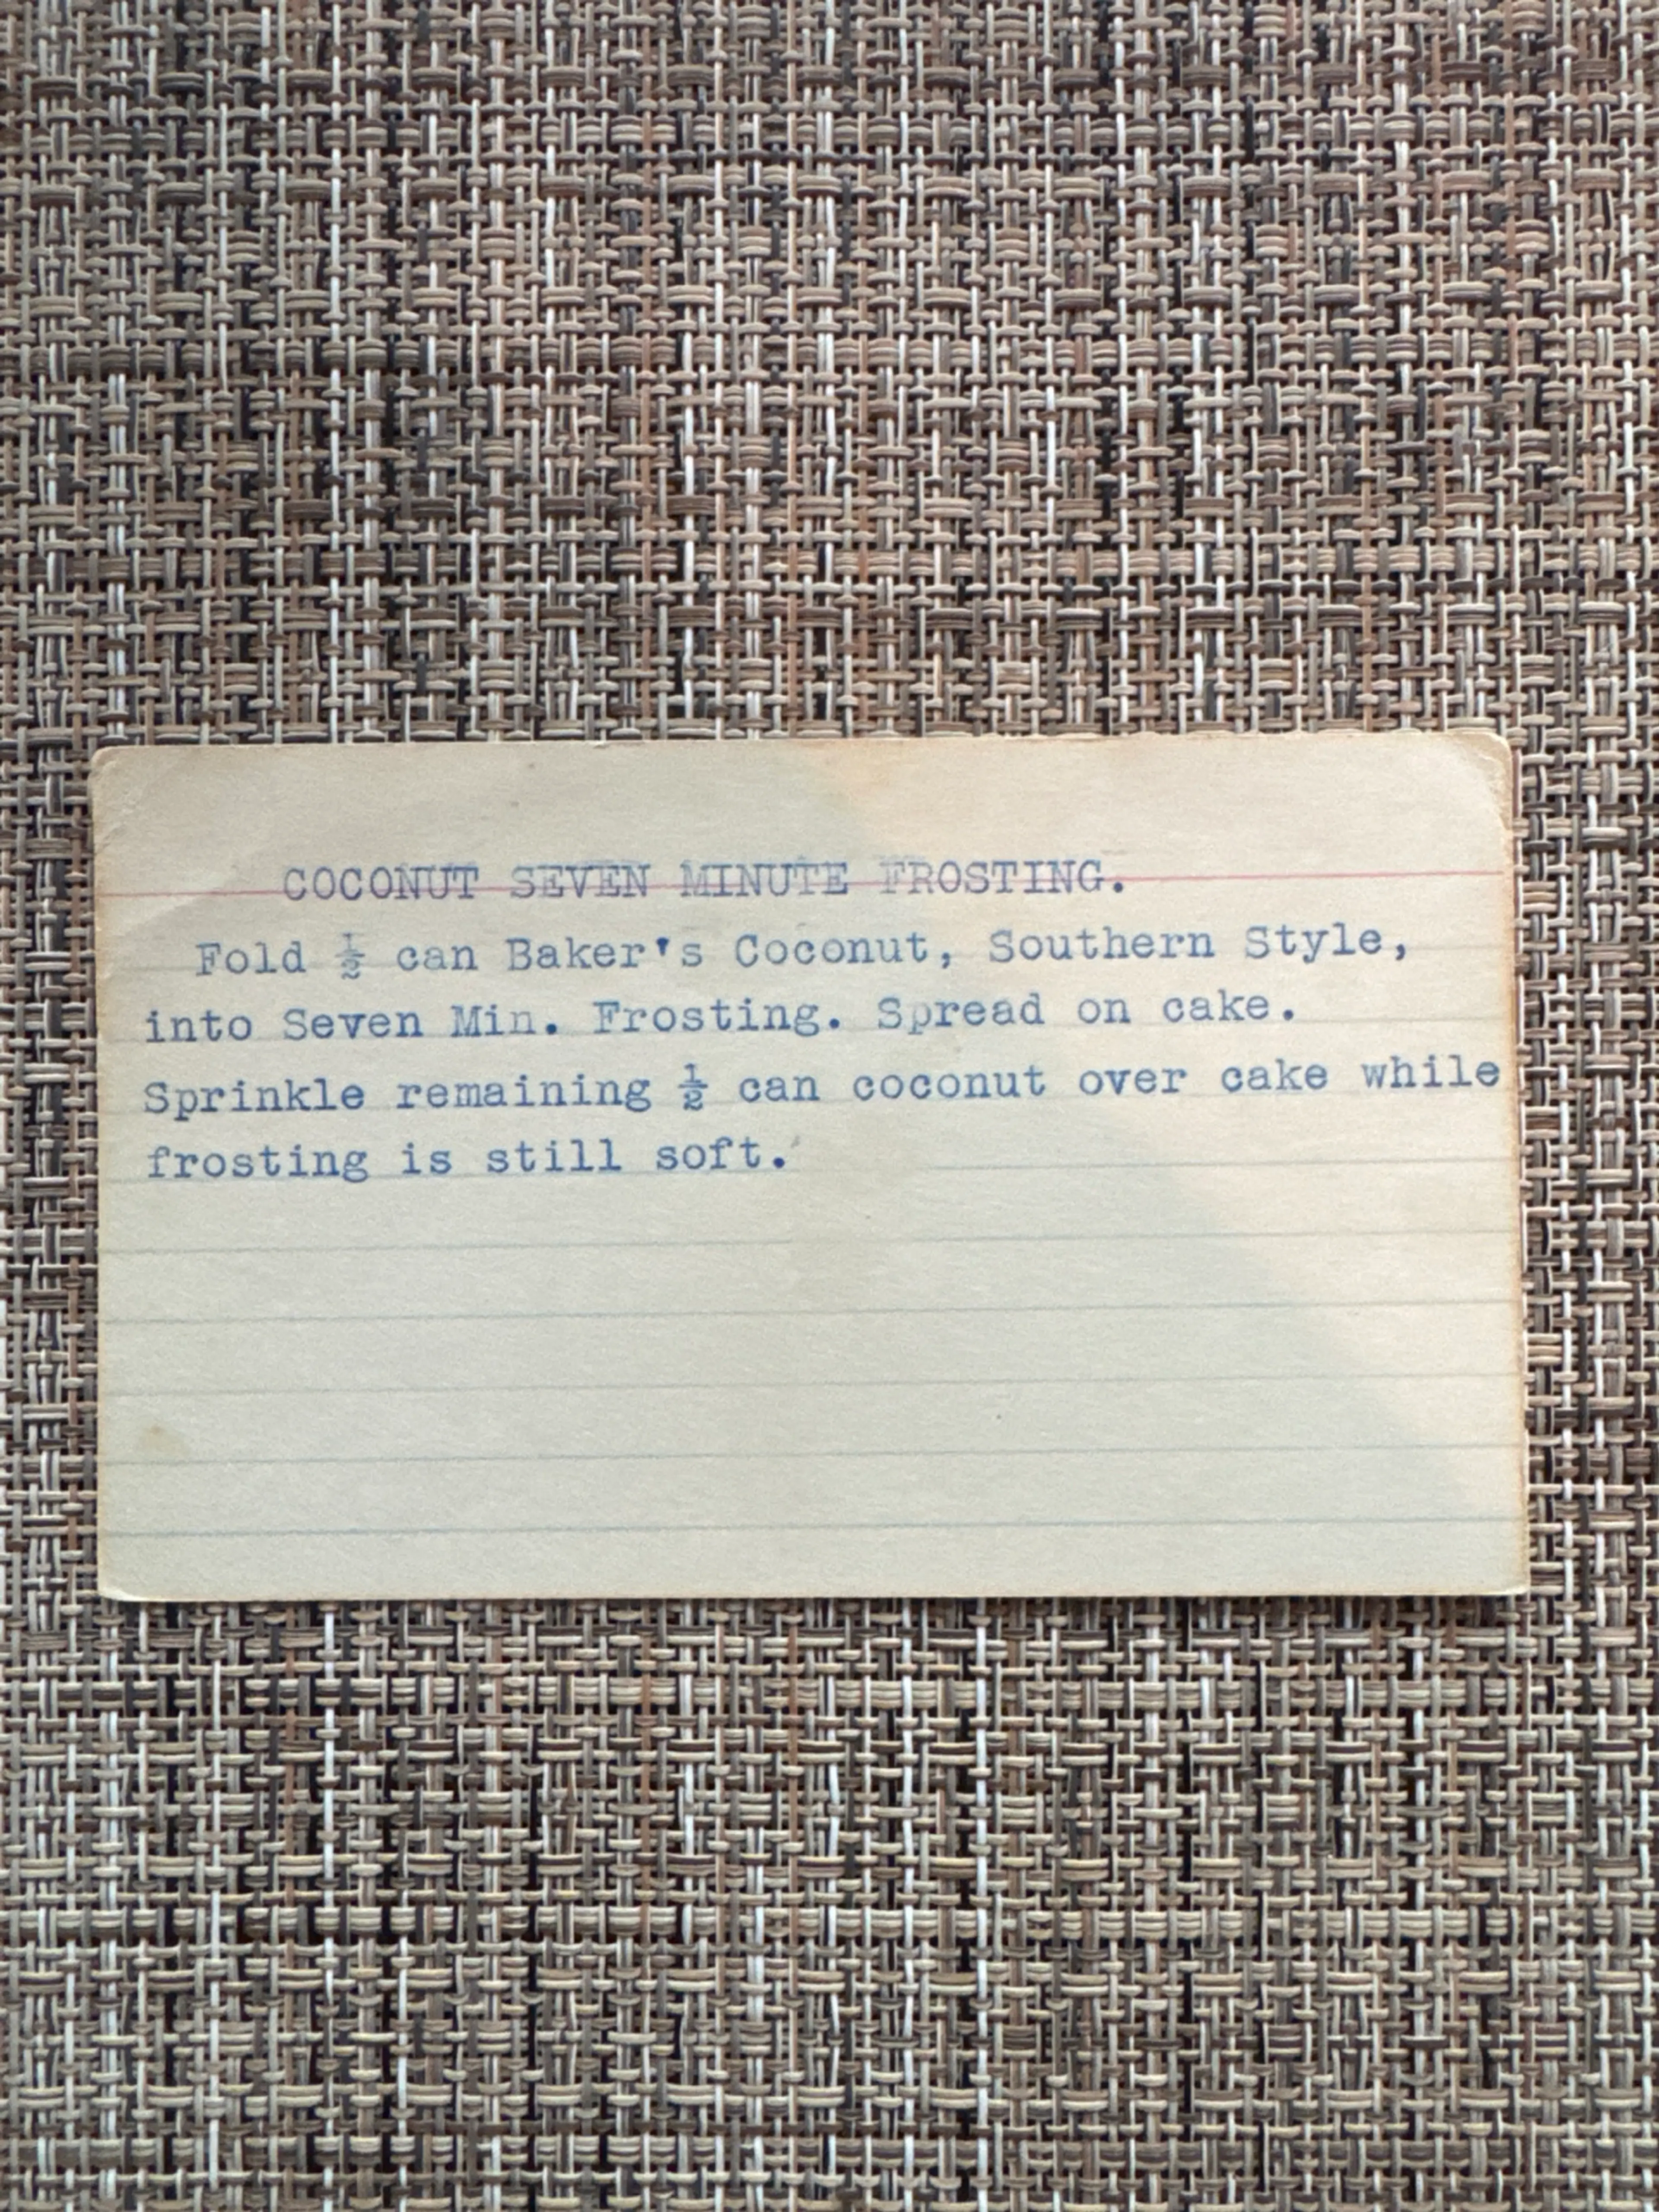 COCONUT SEVEN MINUTE FROSTING.
Fold ½ can Baker's Coconut, Southern Style,
into Seven Min. Frosting. Spread on cake.
Sprinkle remaining ½ can coconut over cake while
frosting is still soft.